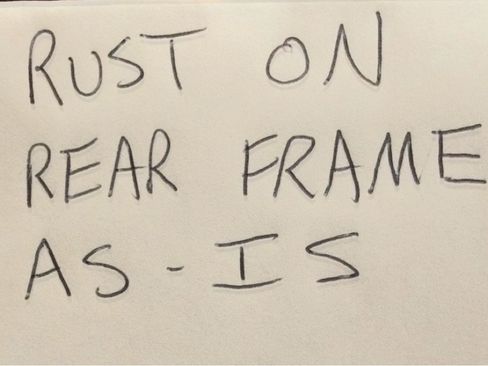 RUST ON
REAR FRAME
AS-IS